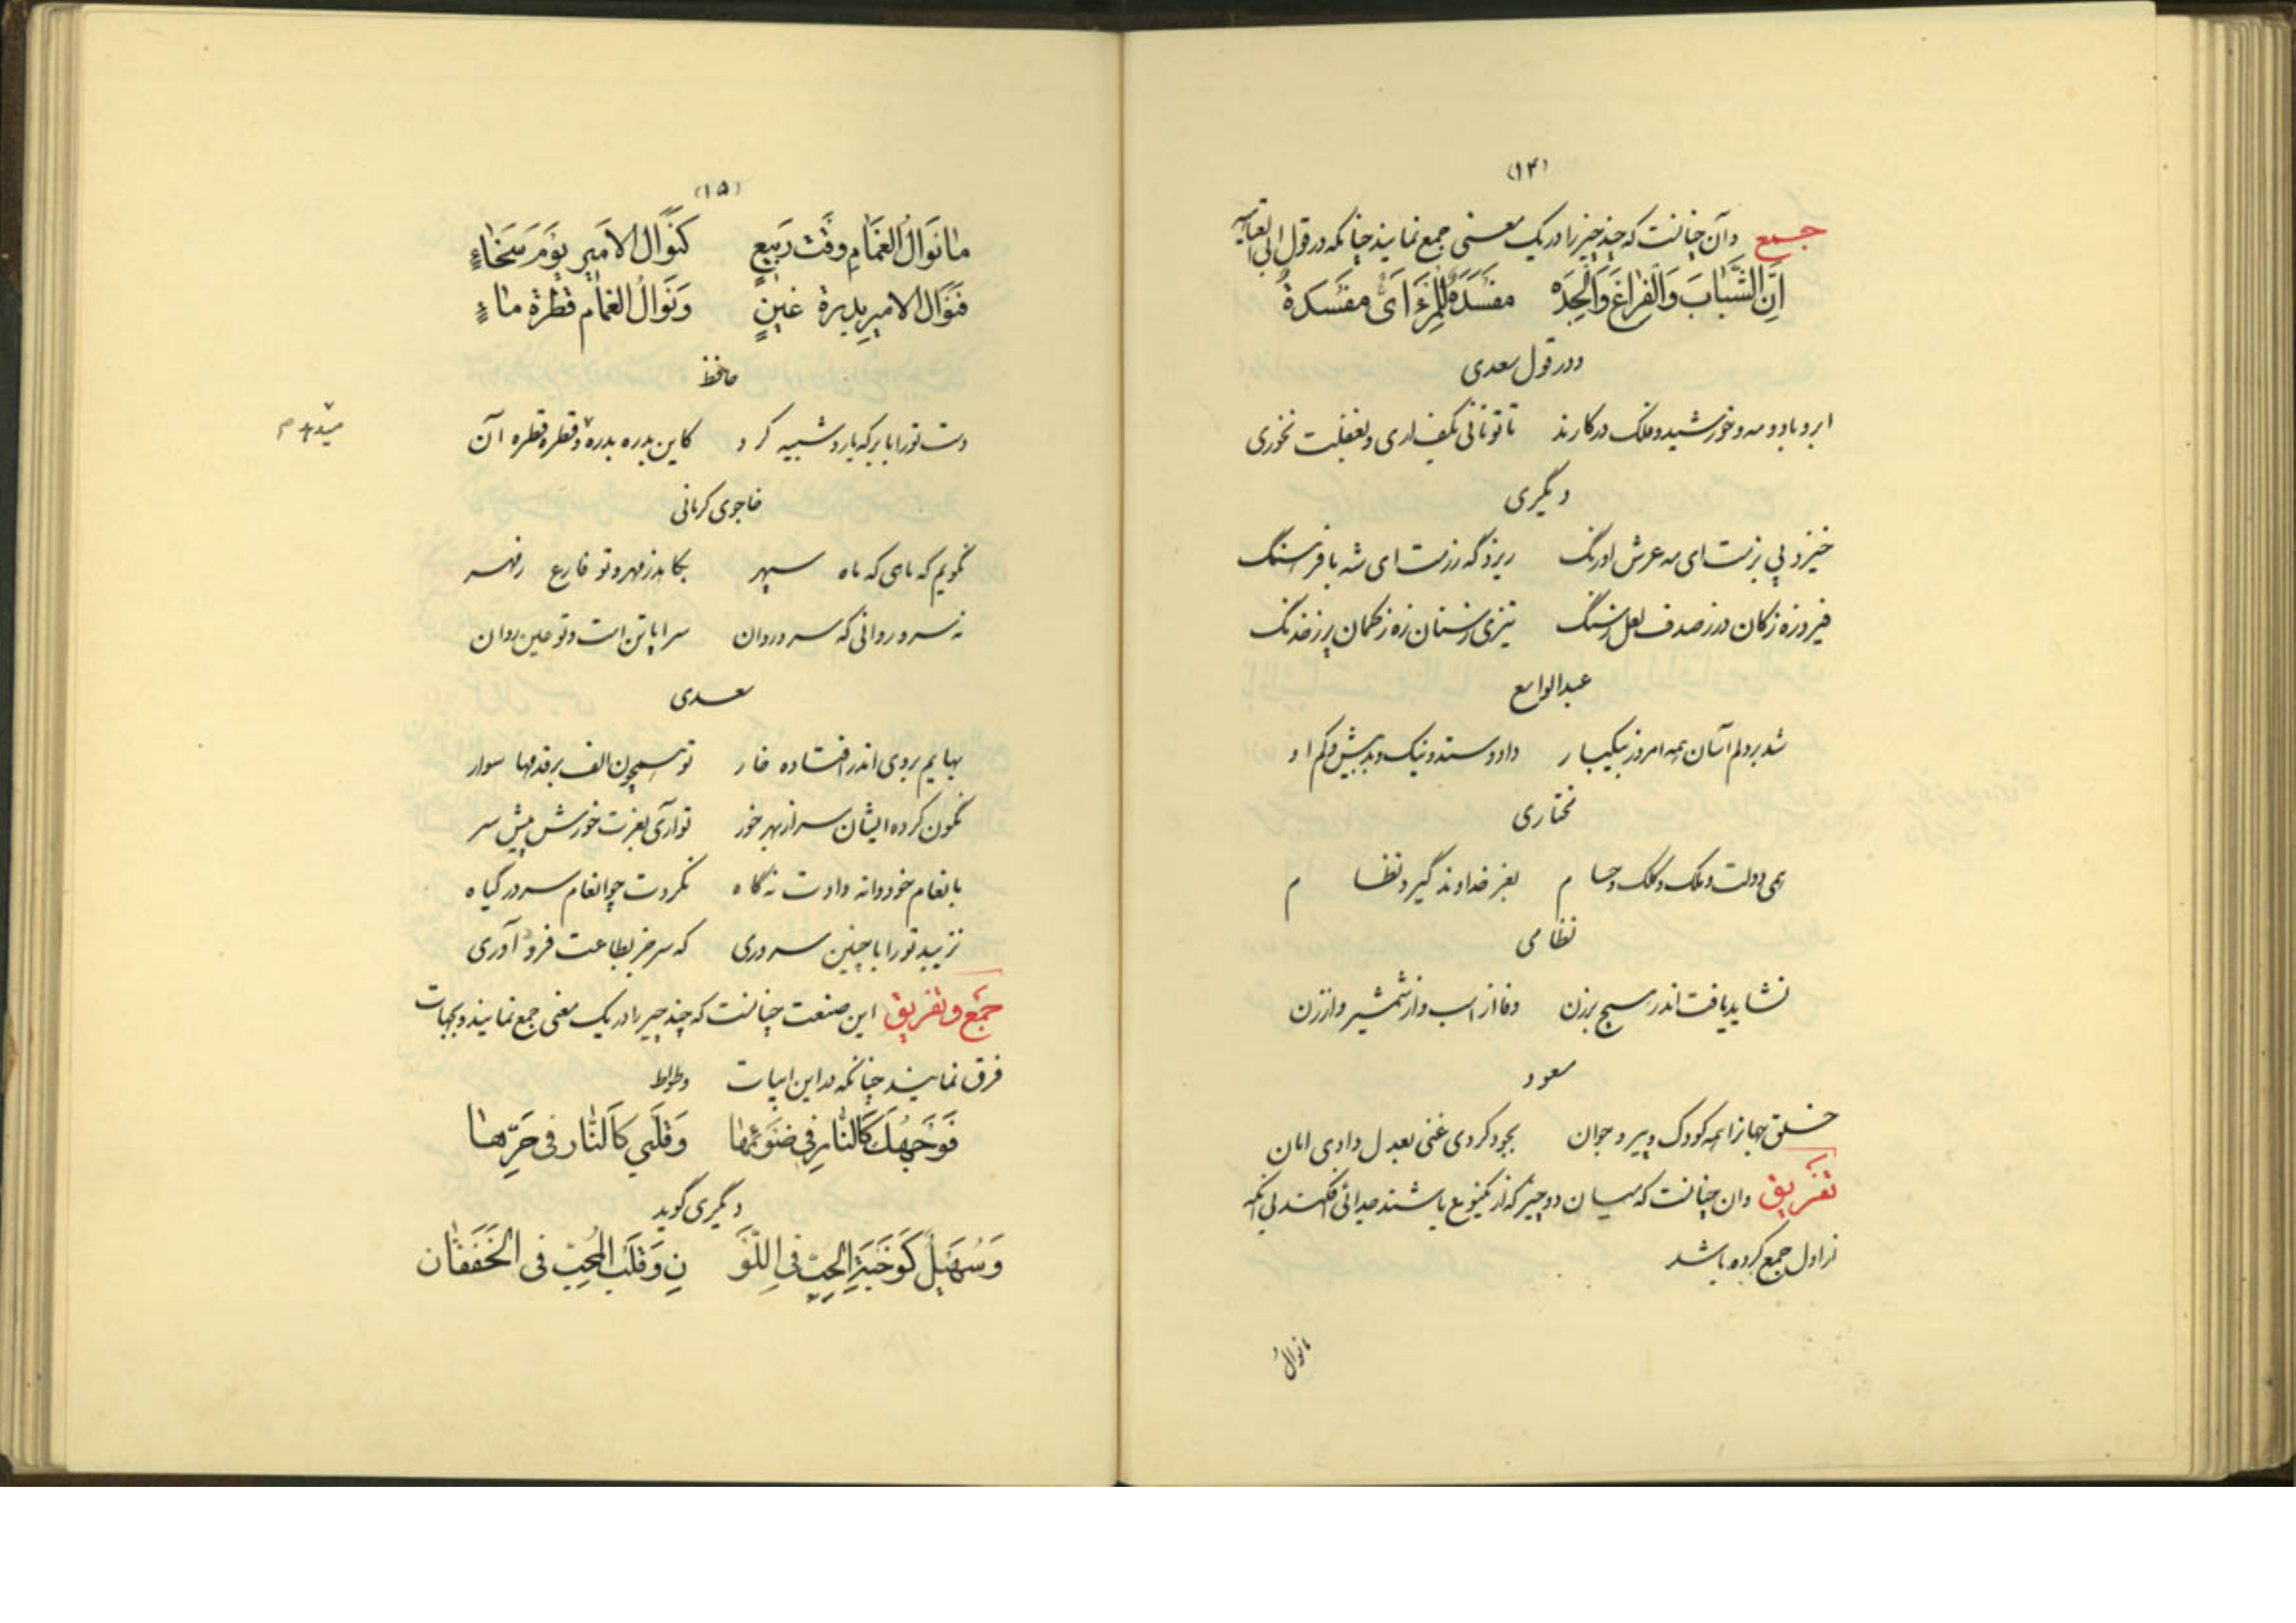 (۱۴)
جمع وآن چنانست که چند چیز را در یک معنی جمع نمایند چنانکه در قول ابی العتاهیه
اِنَّ الشَّبابَ وَالْفَراغَ وَالْجِدَه مَفْسَدَةٌ لِلْمَرْءِ اَیُّ مَفْسَدَةٌ
ودر قول سعدی
ابر و باد و مه و خورشید و فلک درکارند تا تو نانی بکف اری و بغفلت نخوری
دیگری
خیزد پی بزمت ای مه عرش اورنگ ریزد گه رزمت ای شه بافرسنگ
فیروزه زکان درز صدف لعل زسنگ تیزی زسنان زه زکمان پر زخدنگ
عبدالواسع
شد بردلم آسان همه امروز بیکبار داد و ستد و نیک و بد و بیش و کم او
مختاری
همی دولت و ملک و کلک و حسام بفر خداوند گیرد نظام
نظامی
نشاید یافت اندر هیچ برزن وفا از اسب و از شمشیر و از زن
مسعود
خلق جهانرا همه کودک و پیر و جوان بجود کردی غنی بعدل دادی امان
تفریق وان چنانست که میان دو چیز که از یکنوع باشند جدائی افکنند بی انکه
در اول جمع کرده باشد
ما نوالُ
(۱۵)
مانَوالُ الغَمامِ وَقْتَ رَبیعٍ کَنَوالِ الامَیرِ یَوْمَ سَخاءٍ
فَنَوالُ الامیرِ بدرة عَیْنٍ وَنَوالُ الغَمام قَطْرَة ماءٍ
حافظ
دست تورا بابر که یارد شبیه کرد کاین بدره بدره و قطره قطره آن
میدهد م
خاجوی کرمانی
نگویم که ماهی که ماه سپهر بکاهد زمهر و تو فارع زمهر
نه سرو روانی که سرو روان سراپا تن است و تو عین روان
سعدی
بهایم بروی اندر افتاده خار تو همچون الف بر قدمها سوار
نگون کرده ایشان سر از بهر خور تو آری بعزت خورش پیش سر
بانعام خود دانه دادت نه گاه نکردت چو انعام سر در گیاه
نزیبد تورا با چنین سروری که سر جز بطاعت فرود آوری
جَمْع و تَفْریق این صنعت چنانست که چند چیز را در یک معنی جمع نمایند و بجهات
فرق نمایند چنانکه در این ابیات وطواط
فَوَجْهُكَ کَالنّارِ فی ضَوْئِها وَقَلْبی کَالنّار فی حَرِّها
دیگری گوید
وَسُهَیْلٌ کَوَجْنَةِ الحِبِّ فی اللَّوْ نِ وَقَلْبِ المُحِبِّ فی الخَفَقان